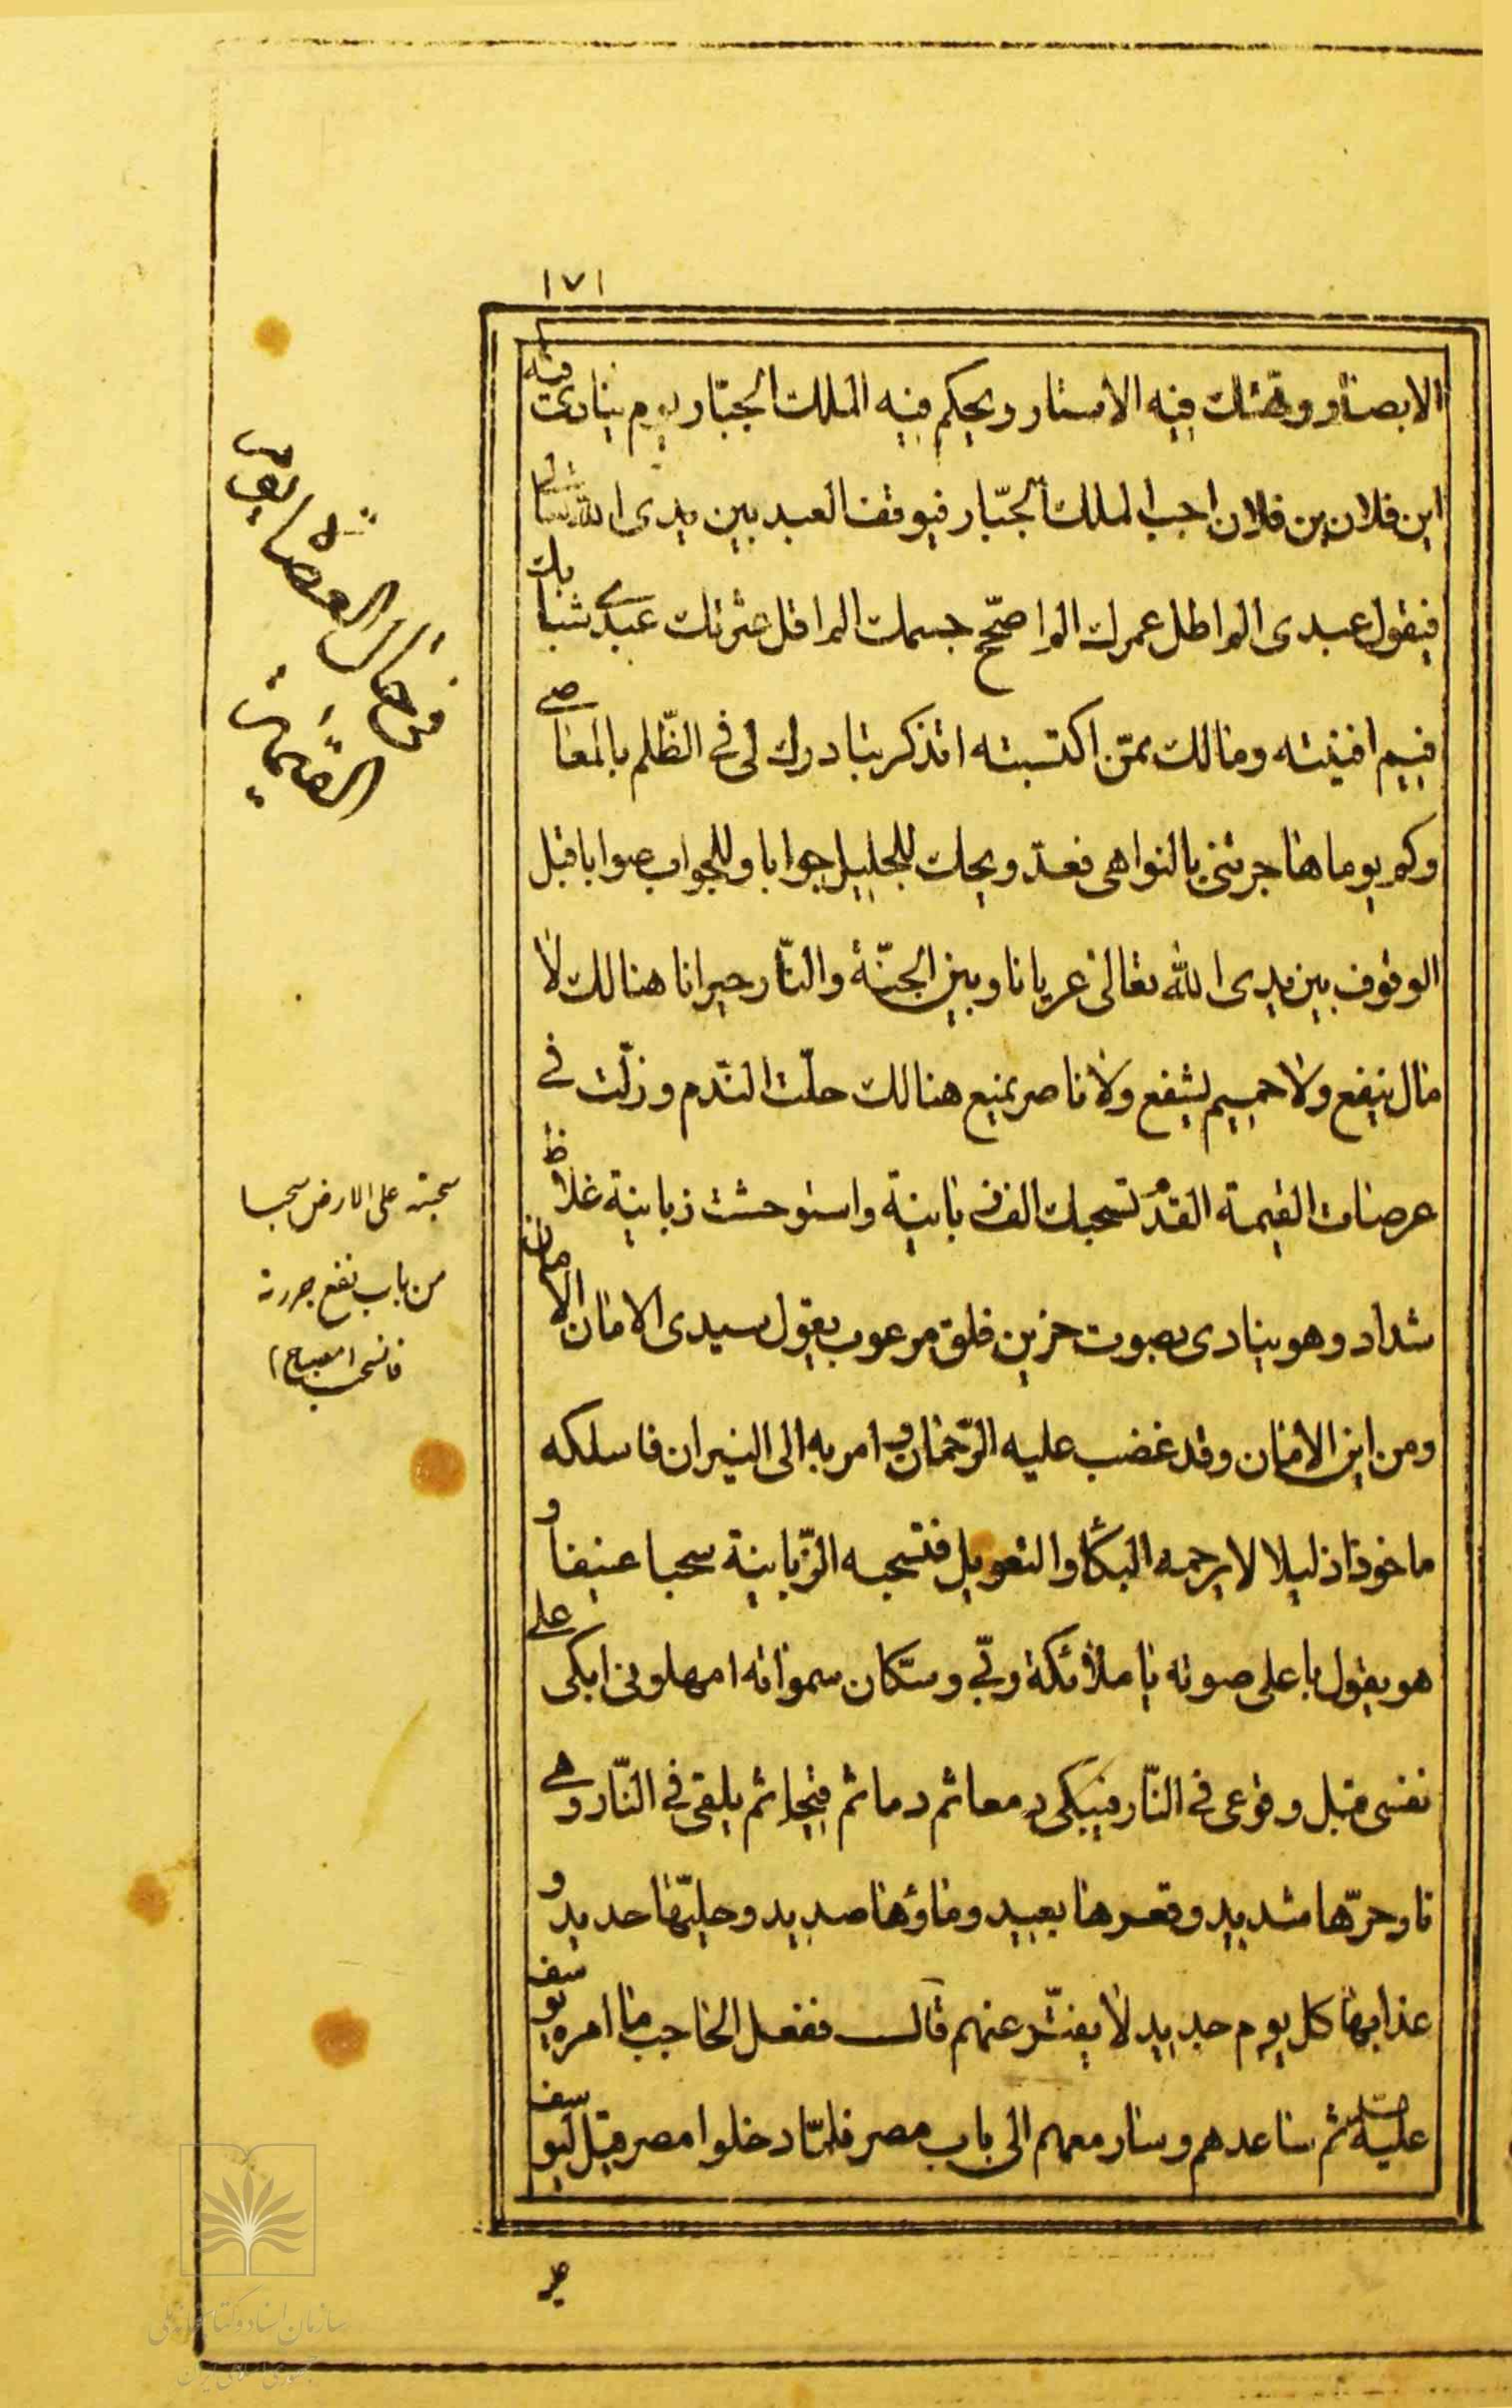 ١٧١
الابصار وهتكت فيه الاستار ويحكم فيه الملك الجبّار يوم ينادى فيه
اين فلان بن فلان اجب الملك الجبّار فيوقف العبد بين يدى الله تعالى
فيقول عبدى الم اطل عمرك الم اصحّ جسمك الم اقل عثرتك عبدى شبابك
فيم افنيته ومالك ممّن اكتسبته اتذكر بتادرك لى فى الظّلم بالمعاصى
وكم يوما هاجرتنى بالنواهى فعدّ ويحك للجليل جوابا وللجواب صوابا قبل
الوقوف بين يدى الله تعالى عريانا وبين الجنّة والنّار حيرانا هنالك لا
مال ينفع ولا حميم يشفع ولا ناصر يمنع هنالك حلّت الندّم وزلّت فى
عرصات القيمة القدم تسحبك الف زبانية واستوحشت زبانية غلاظ
شداد وهو ينادى بصوت حزين قلق مرعوب يقول سيدى الامان الامان
ومن اين الامان وقد غضب عليه الرّحمان وامر به الى النيران فاسلكه
ماخوذا ذليلا لا يرحمه البكاء والتعويل فتسحبه الزّبانية سحبا عنيفا و
هو يقول باعلى صوته يا ملائكة ربّى وسكّان سمواته امهلونى ابكى على
نفسى قبل وقوعى فى النّار فيبكى دمعا ثم دما ثم قيحا ثم يلقى فى النّار وهى
نار حرّها شديد وقعرها بعيد وماؤها صديد وحليّها حديد و
عذابها كل يوم جديد لا يفتّر عنهم قال ففعل الحاجب ما امره يوسف
عليه ثم ساعدهم وسار معهم الى باب مصر فلمّا دخلوا مصر قيل ليوسف
فى حال العصاة يوم
القيمة
سحبته على الارض سحبا
من باب نفع جررته
فانسحب (مصباح)
سازمان اسناد و کتابخانه ملی
جمهوری اسلامی ایران